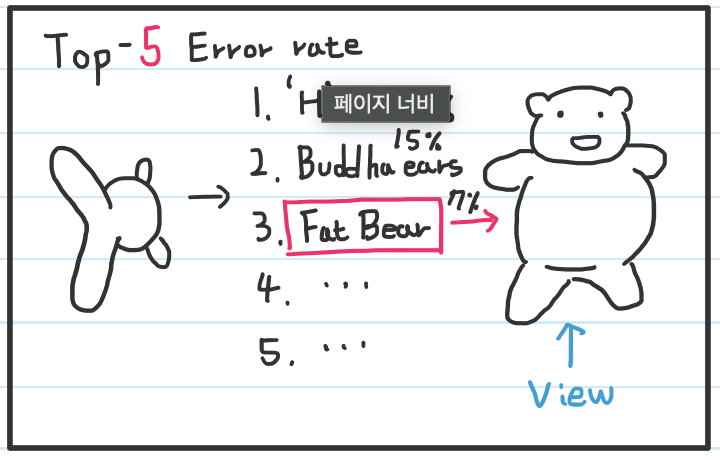 Top-5 Error rate
1. 'H
페이지 너비
15%
2. Buddha ears
7%
3. Fat Bear
4. ...
5. ...
View